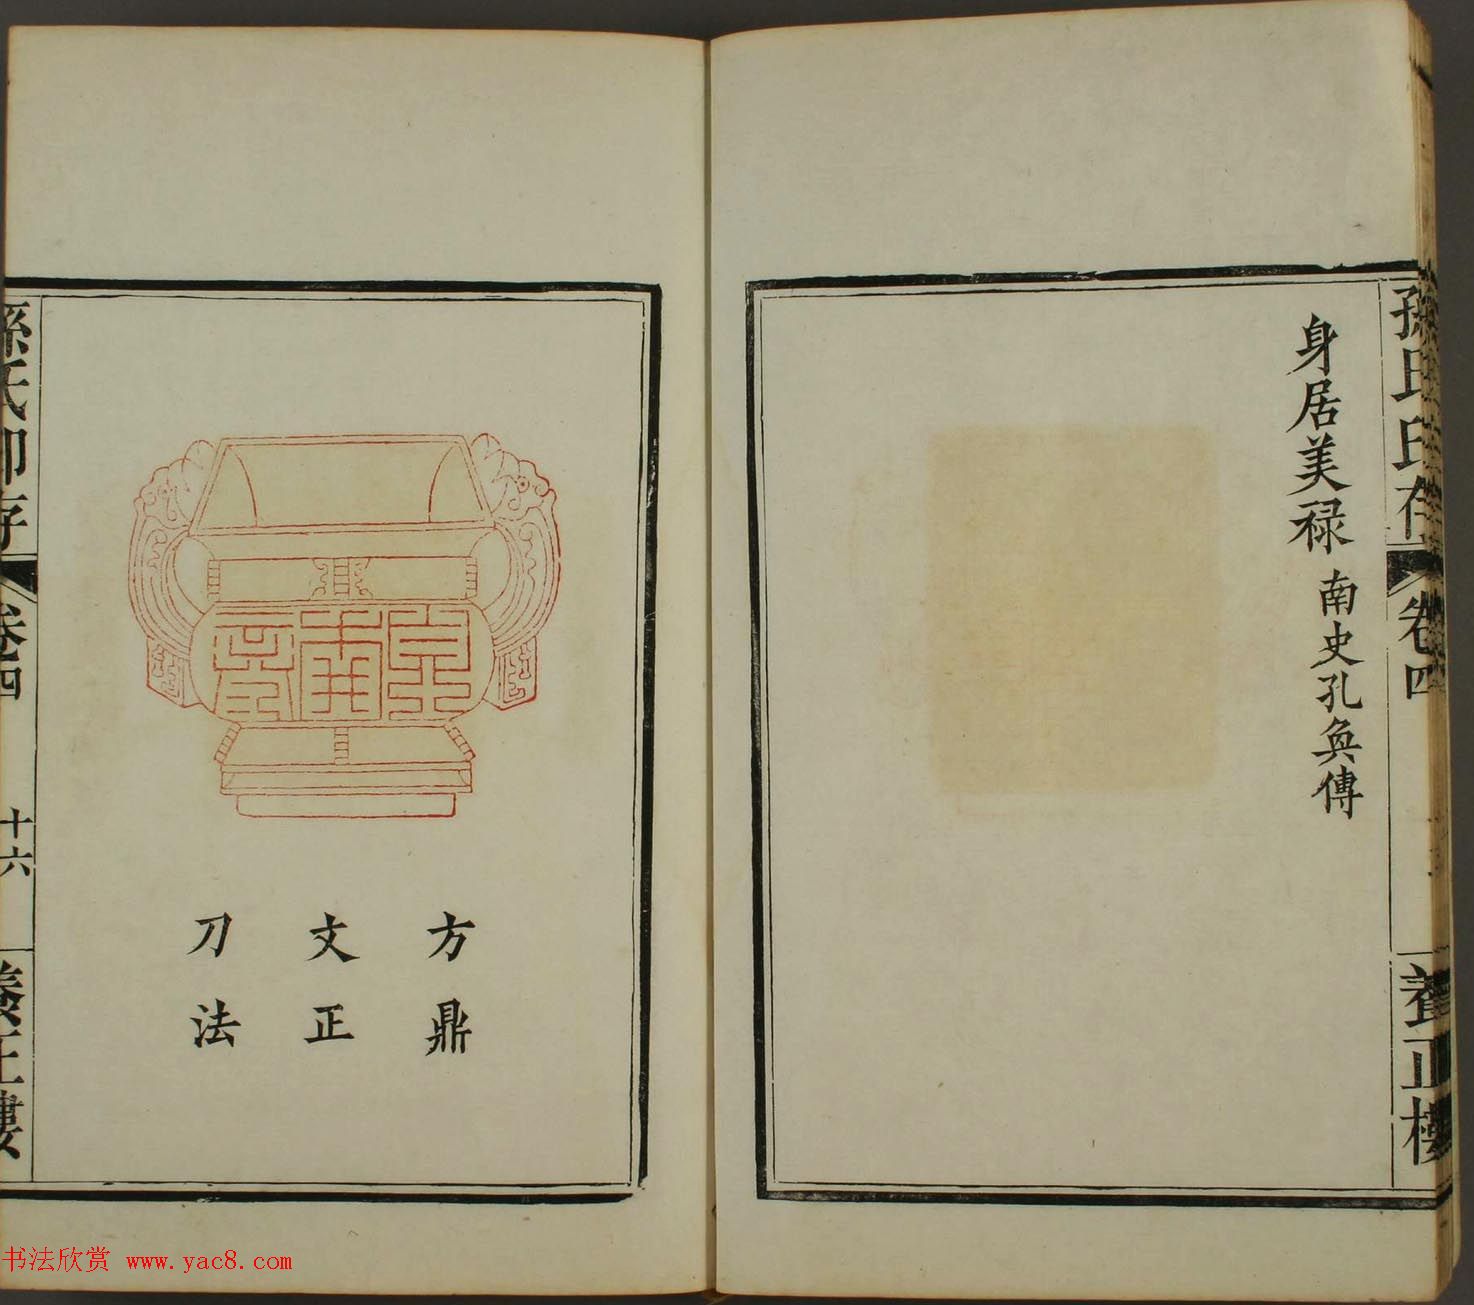 孫氏印存
卷四
養正樓
身居美禄 南史孔奐傳
方鼎
文正
刀法
孫氏印存
卷四
十六
養正樓
书法欣赏 www.yac8.com